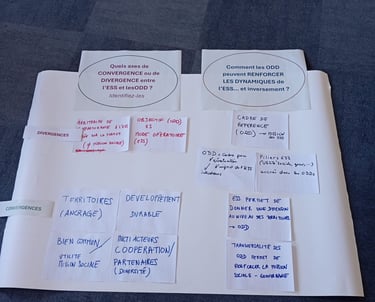 Quels axes de
CONVERGENCE ou de
DIVERGENCE entre
l'ESS et les ODD?
Identifiez-les
Comment les ODD
peuvent RENFORCER
LES DYNAMIQUES de
l'ESS... et inversement ?
DIVERGENCES
OBJECTIF (ODD)
ET
MODE OPÉRATOIRE
(ESS)
CADRE DE
REFERENCE
(ODD)
ODD
Piliers ESS
dans les ODD
CONVERGENCES
TERRITOIRES
(ANCRAGE)
DEVELOPPEMENT
DURABLE
ESS PERMET DE
DONNER UNE DIMENSION
AU NIVEAU DES TERRITOIRES
→ ODD
BIEN COMMUN/
UTILITÉ
MISSION SOCIALE
MULTI ACTEURS
COOPÉRATION/
PARTENAIRES
(DIVERSITÉ)
TRANSVERSALITÉ DES
ODD PERMET DE
RENFORCER LA MISSION
SOCIALE - GOUVERNANCE